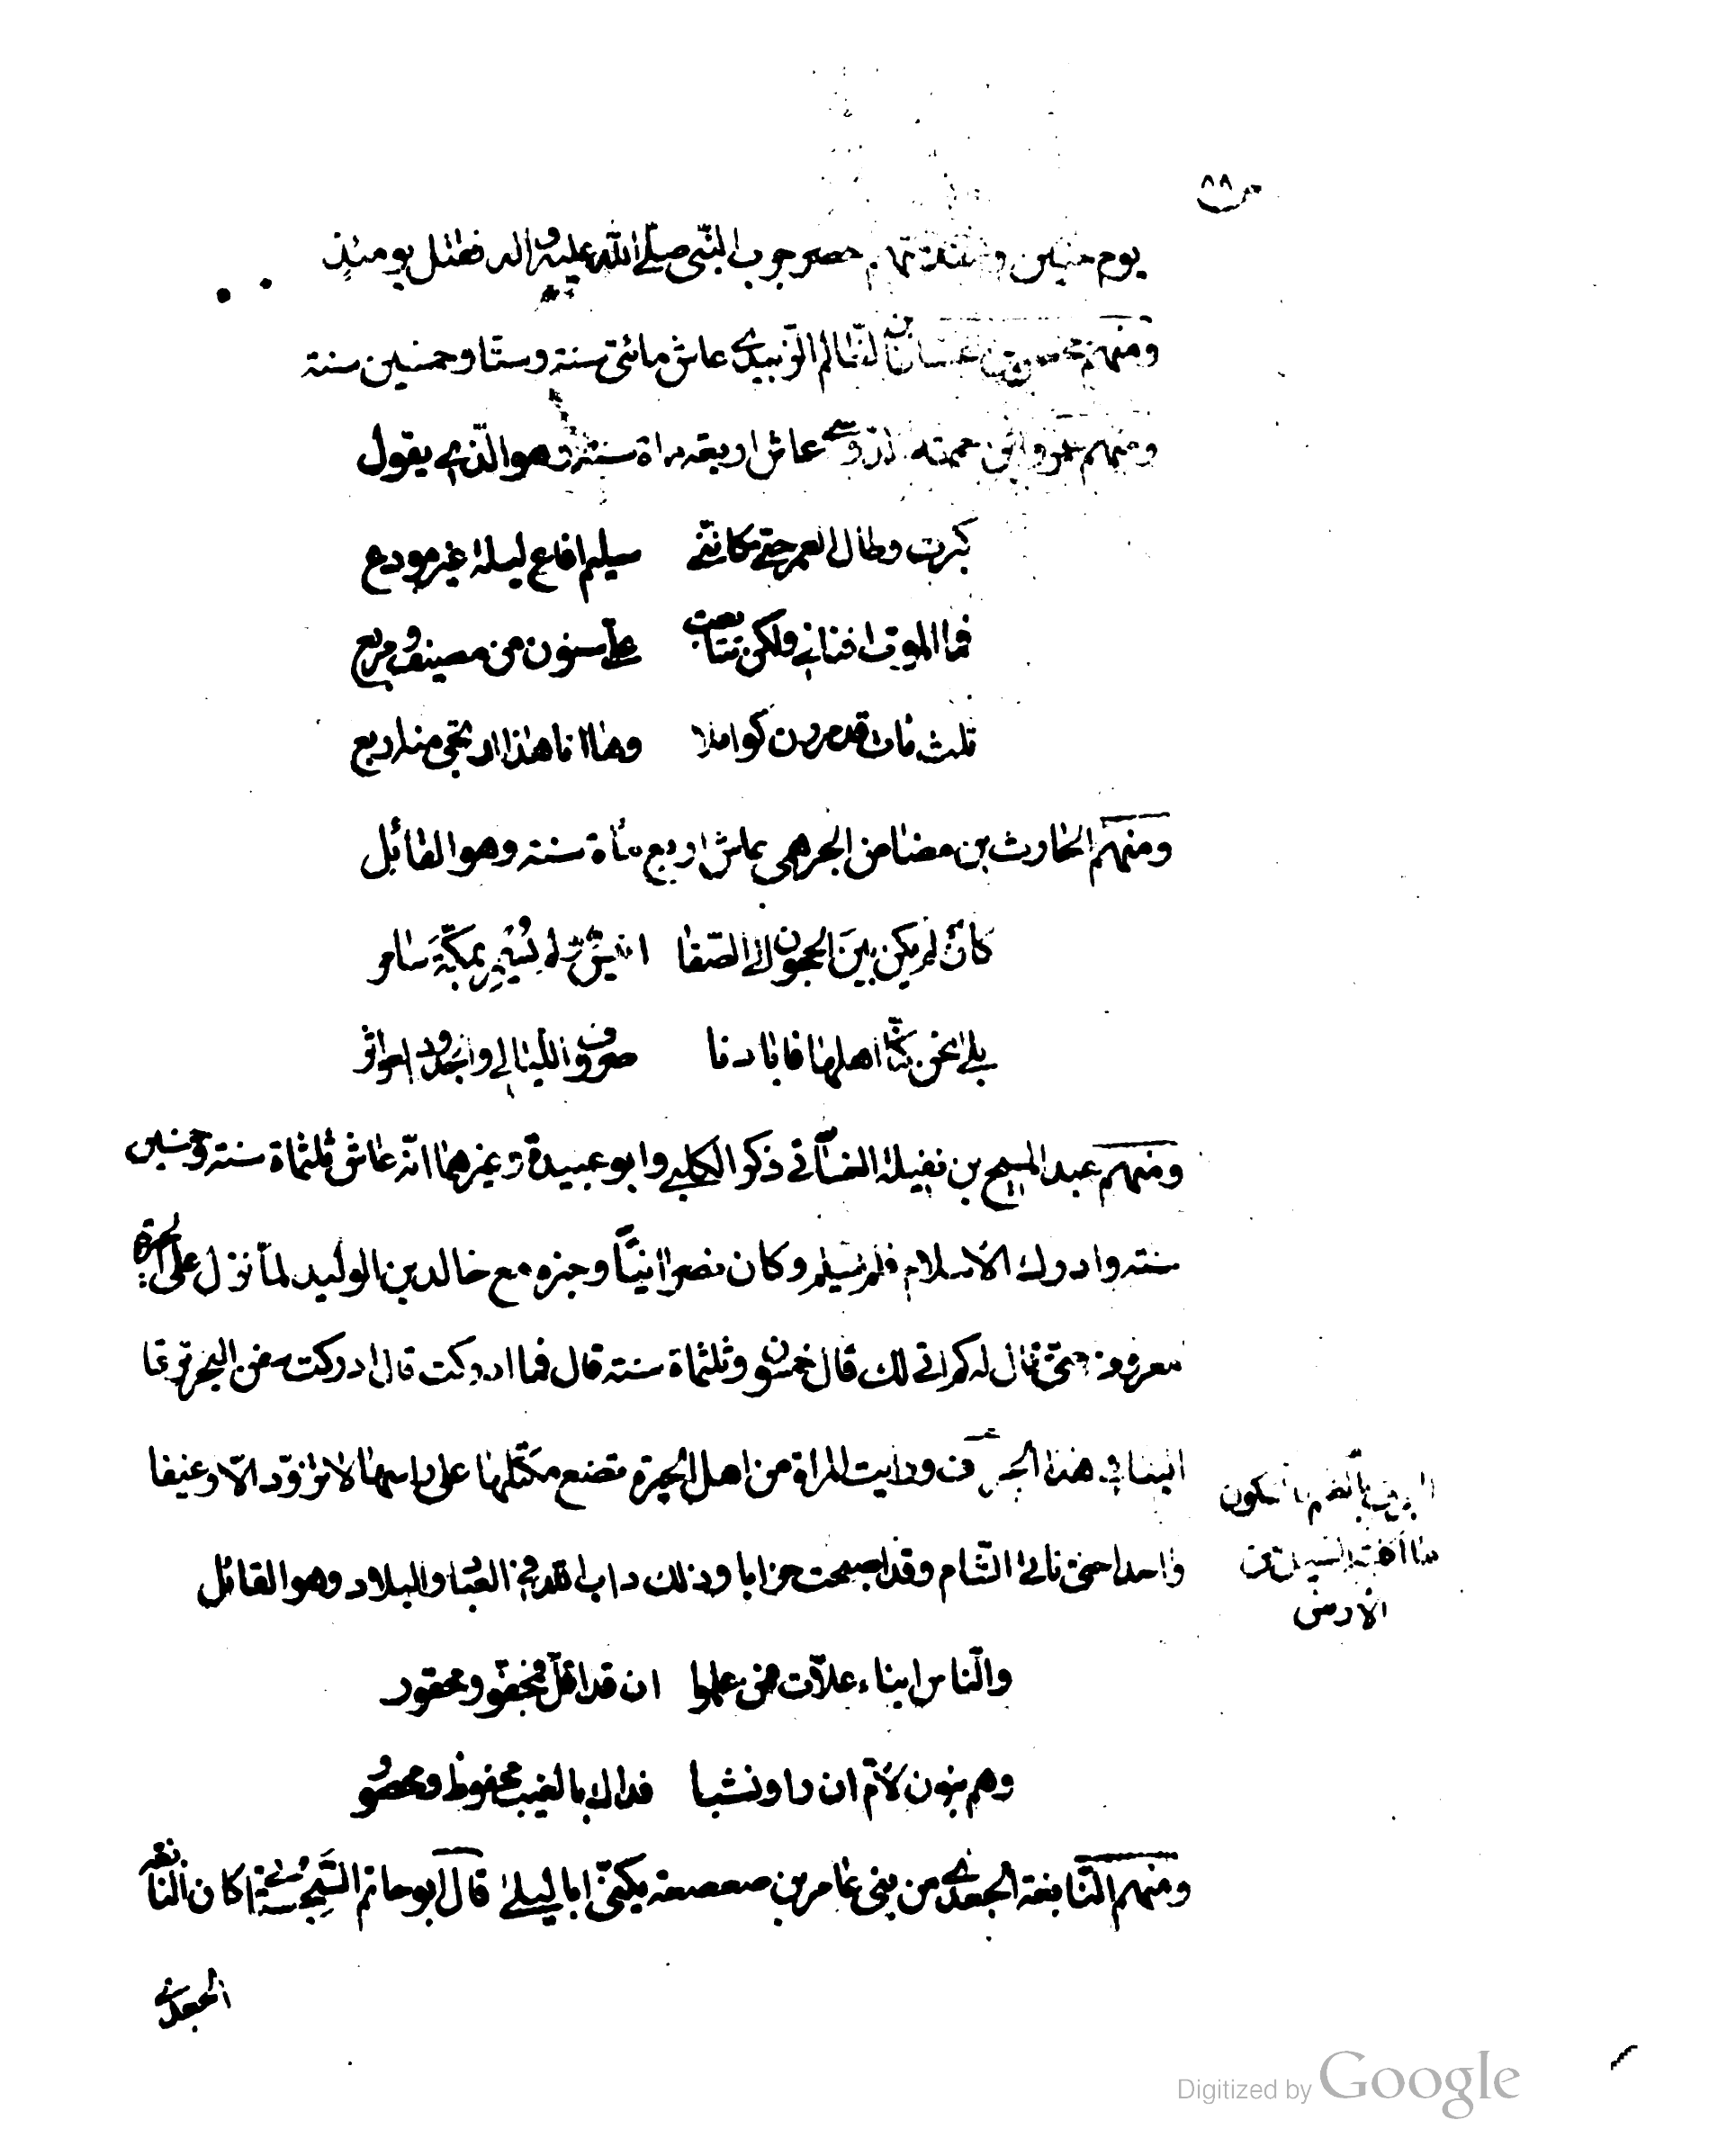 ٨٨
يوم حنين حضر حرب النبي صلى الله عليه واله فقتل يومئذ
ومنهم محصن بن الظالم الزبيدي عاش مائتى سنة وستا وخمسين سنة
ومنهم عمرو بن حممة الدوسي عاش اربعمأة سنة وهو الذي يقول
كبرت وطال العمر حتى كانني سليم افاع ليلة غير مودع
فما الموت افناني ولكن تتابعت علي سنون من مصيف ومربع
ثلث مات قد مررن كواملا وها انا هذا ارتجى منه اربع
ومنهم الحارث بن مضاض الجرهمي عاش اربع مأة سنة وهو القائل
كان لم يكن بين الحجون الى الصفا انيس ولم يسمر بمكة سامر
بلى نحن كنا اهلها فابادنا صروف الليالي والجدود العواثر
ومنهم عبد المسيح بن نفيلة الغساني ذكر الكلبي وابو عبيدة وغيرهما انه عاش ثلثمأة سنة وخمسين
سنة وادرك الاسلام فلم يسلم وكان نصرانيا وخبره مع خالد بن الوليد لما نزل على الحيرة
معروف حتى قال له كم اتى لك قال خمسون وثلثمأة سنة قال فما ادركت قال ادركت سفن البحر ترفا
الينا في هذا الجرف ورايت المراة من اهل الحيرة تضع مكتلها على راسها لا تزود الا رغيفا
واحدا حتى تاتي الشام وقد اصبحت خرابا وذلك داب الله في العباد والبلاد وهو القائل
والناس ابناء علات فمن علموا ان قد اقل فمجفو ومحقور
وهم بنون لام ان راو نشبا فذاك بالغيب محفوظ ومحصور
ومنهم النابغة الجعدي من بنى عامر بن صعصعة يكنى ابا ليلى قال ابو حاتم السجستاني كان النابغة
الجعدي
الجرف بالضم والسكون
ما اكلته السيل من
الارض
Digitized by Google